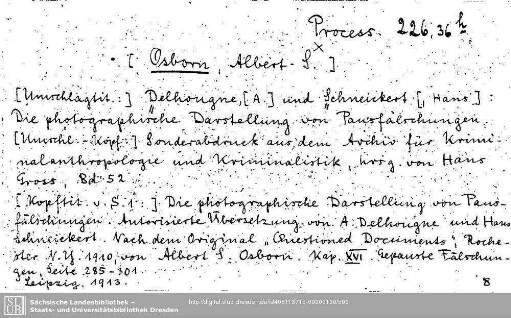 Process. 226,36 h
[ Osborn, Albert S. ×]
[Umschlagtit.:] Delhougne, [A.] und Schneickert [, Hans] :
Die photographische Darstellung von Pausfälschungen.
[Umschl.-Kopf:] Sonderabdruck aus dem Archiv für Krimi-
nalanthropologie und Kriminalistik, hrsg. von Hans
Gross, Bd. 52
[Kopftit. v. S. 1 :] Die photographische Darstellung von Paus-
fälschungen. Autorisierte Übersetzung von A. Delhougne und Hans
Schneickert. Nach dem Original „Questioned Documents“, Roche-
ster N.Y. 1910, von Albert S. Osborn. Kap. XVI Gepauste Fälschun-
gen, Seite 285-301.
Leipzig. 1913.
8
SLUB
Sächsische Landesbibliothek –
Staats- und Universitätsbibliothek Dresden